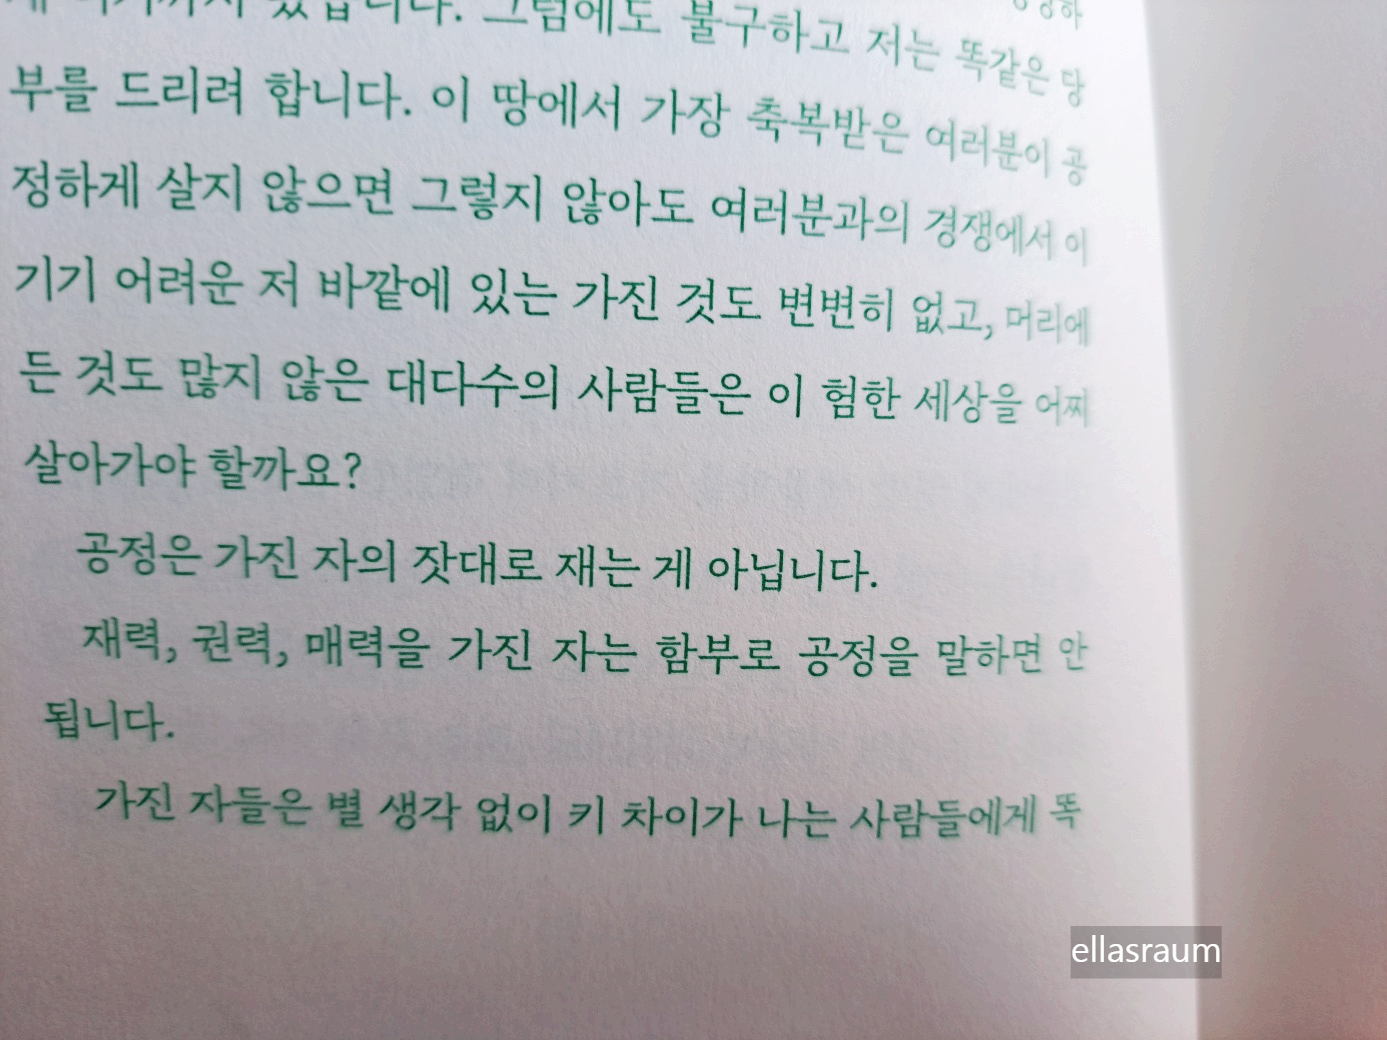 있습니다. 그럼에도 불구하고 저는 똑같은 당
부를 드리려 합니다. 이 땅에서 가장 축복받은 여러분이 공
정하게 살지 않으면 그렇지 않아도 여러분과의 경쟁에서 이
기기 어려운 저 바깥에 있는 가진 것도 변변히 없고, 머리에
든 것도 많지 않은 대다수의 사람들은 이 험한 세상을 어찌
살아가야 할까요?
공정은 가진 자의 잣대로 재는 게 아닙니다.
재력, 권력, 매력을 가진 자는 함부로 공정을 말하면 안
됩니다.
가진 자들은 별 생각 없이 키 차이가 나는 사람들에게 똑
ellasraum